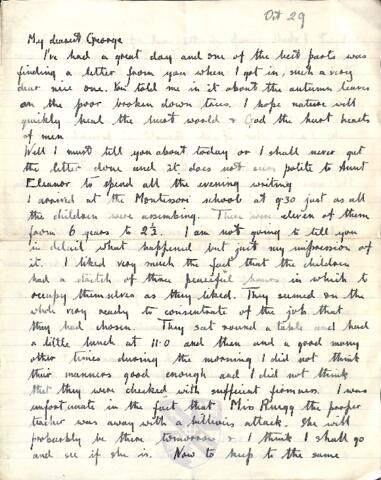 Oct 29
My dearest George
I've had a great day and one of the best parts was
finding a letter from you when I got in, such a very
dear nice one. You told me in it about the autumn leaves
on the poor broken down trees. I hope nature will
quickly heal the hurt world & God the hurt hearts
of men
Well I must tell you about today or I shall never get
the letter done and it does not seem polite to Aunt
Eleanor to spend all the evening writing
I arrived at the Montessori school at 9.30 just as all
the children were assembling. There were eleven of them
from 6 years to 2½. I am not going to tell you
in detail what happened but just my impression of
it. I liked very much the fact that the children
had a stretch of three peaceful hours in which to
occupy themselves as they liked. They seemed on the
whole very ready to consentrate of the job that
they had chosen. They sat round a table and had
a little lunch at 11.0 and then and a good many
other times during the morning I did not think
their manners good enough and I did not think
that they were checked with sufficient firmness. I was
unfortunate in the fact that Miss Rugg the proper
teacher was away with a billious attack. She will
probably be there tomorrow & I think I shall go
and see if she is. Now to keep to the same